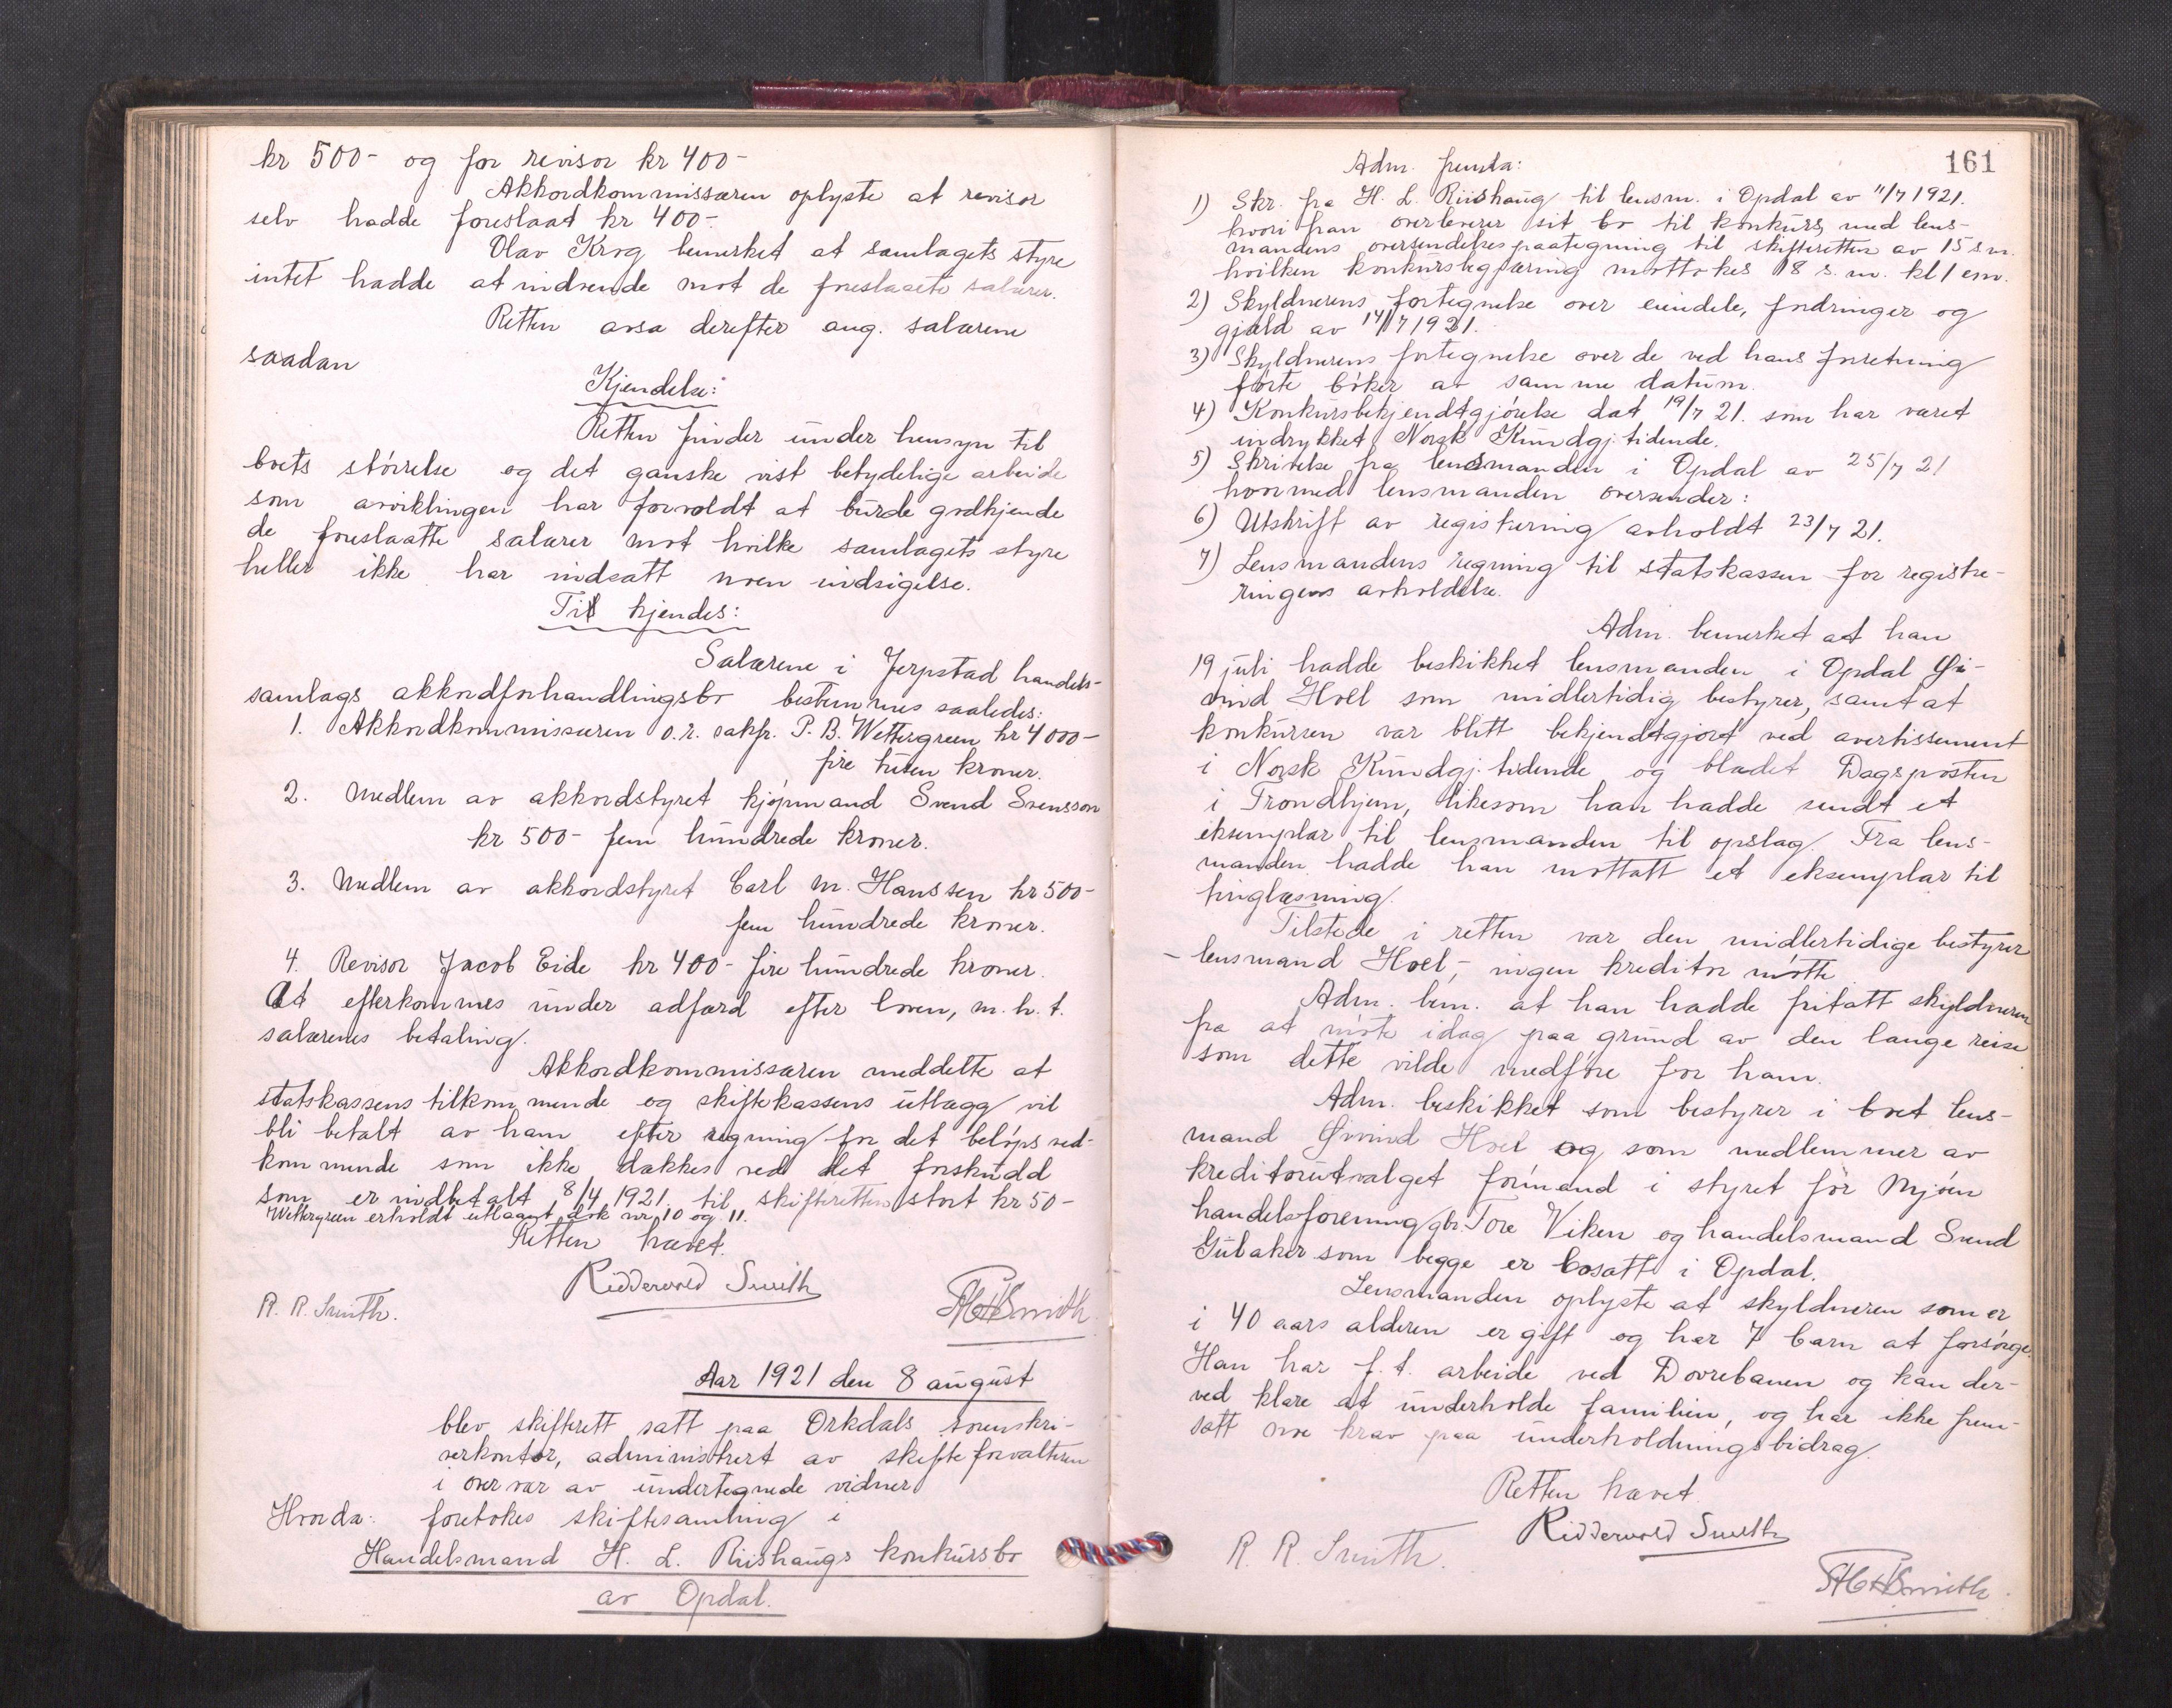 kr 500- og for revisor kr 400-
Akkordkommissæren oplyste at revisor
selv hadde foreslaat kr 400-.
Olav Krog bemerket at samlagets styre
intet hadde at indvende mot de foreslaatte salærer.
Retten avsa derefter ang. salærene
saadan
Kjendelse:
Retten finder under hensyn til
boets størrelse og det ganske vist betydelige arbeide
som avviklingen har forvoldt at burde godkjende
de foreslaatte salærer mot hvilke samlagets styre
heller ikke har indsatt noen indsigelse.
Ti kjendes:
Salærene i Jerpstad handels-
samlags akkordforhandlingsbo bestemmes saaledes:
1. Akkordkommissæren o.r. sakfr. P. B. Wettergreen kr 4000-
fire tusen kroner.
2. Medlem av akkordstyret kjøpmand Svend Svensson
kr 500- fem hundrede kroner.
3. Medlem av akkordstyret Carl M. Hanssen kr 500-
fem hundrede kroner.
4. Revisor Jacob Eide kr 400- fire hundrede kroner.
At efterkommes under adfærd efter loven, m. h. t.
salærenes betaling.
Akkordkommissæren meddelte at
statskassens tilkommende og skiftekassens utlægg vil
bli betalt av ham efter regning for det beløps ved-
kommende som ikke dækkes ved det forskudd
som er indbetalt 8/4 1921, til skifteretten stort kr 50-
Wettergreen erholdt utlaant dok nr 10 og 11.
Retten hævet.
Ridderwold Smith
R. R. Smith.
Smith
Aar 1921 den 8 august
blev skifterett satt paa Orkdals sorenskri-
verkontor, administrert av skifteforvalteren
i overvær av undertegnede vidner
Hvorda: foretokes skiftesamling i
Handelsmand H. L. Riishaugs konkursbo
av Opdal.
161
Adm. fremla:
1) Skr. fra H. L. Riishaug til lensm. i Opdal av 11/7 1921.
hvori han overleverer sit bo til konkurs, med lens-
mandens oversendelsespaategning til skifteretten av 15 s.m.
hvilken konkursbegjæring mottokes 18 s. m. kl 1 em.
2) Skyldnerens fortegnelse over eiendele, fordringer og
gjæld av 14/7 1921.
3) Skyldnerens fortegnelse over de ved hans forretning
førte bøker av samme datum.
4) Konkursbekjendtgjørelse dat 19/7 21. som har været
indrykket i Norsk Kundgj. tidende.
5) Skrivelse fra lensmanden i Opdal av 25/7 21
hvormed lensmanden oversender:
6) Utskrift av registrering avholdt 23/7 21.
7) Lensmandens regning til statskassen for registre-
ringens avholdelse.
Adm. bemerket at han
19 juli hadde beskikket lensmanden i Opdal Øi-
vind Hoel som midlertidig bestyrer, samt at
konkursen var blitt bekjendtgjort ved avertissement
i Norsk Kundgj. tidende og bladet Dagsposten
i Trondhjem, likesom han hadde sendt et
eksemplar til lensmanden til opslag. Fra lens-
manden hadde han mottatt et eksemplar til
tinglæsning.
Tilstede i retten var den midlertidige bestyrer
- lensmand Hoel, - ingen kreditor møtte.
Adm. bem. at han hadde fritatt skyldneren
fra at møte idag paa grund av den lange reise
som dette vilde medføre for ham.
Adm. beskikket som bestyrer i boet lens-
mand Øivind Hoel og som medlemmer av
kreditorutvalget formand i styret for Mjøen
handelsforening gbr. Tore Viken og handelsmand Svend
Gulaker som begge er bosatt i Opdal.
Lensmanden oplyste at skyldneren som er
i 40 aars alderen er gift og har 7 barn at forsørge.
Han har f. t. arbeide ved Dovrebanen og kan der-
ved klare at underholde familien, og har ikke frem-
satt noe krav paa underholdningsbidrag.
Retten hævet.
Ridderwold Smith
R. R. Smith.
Smith